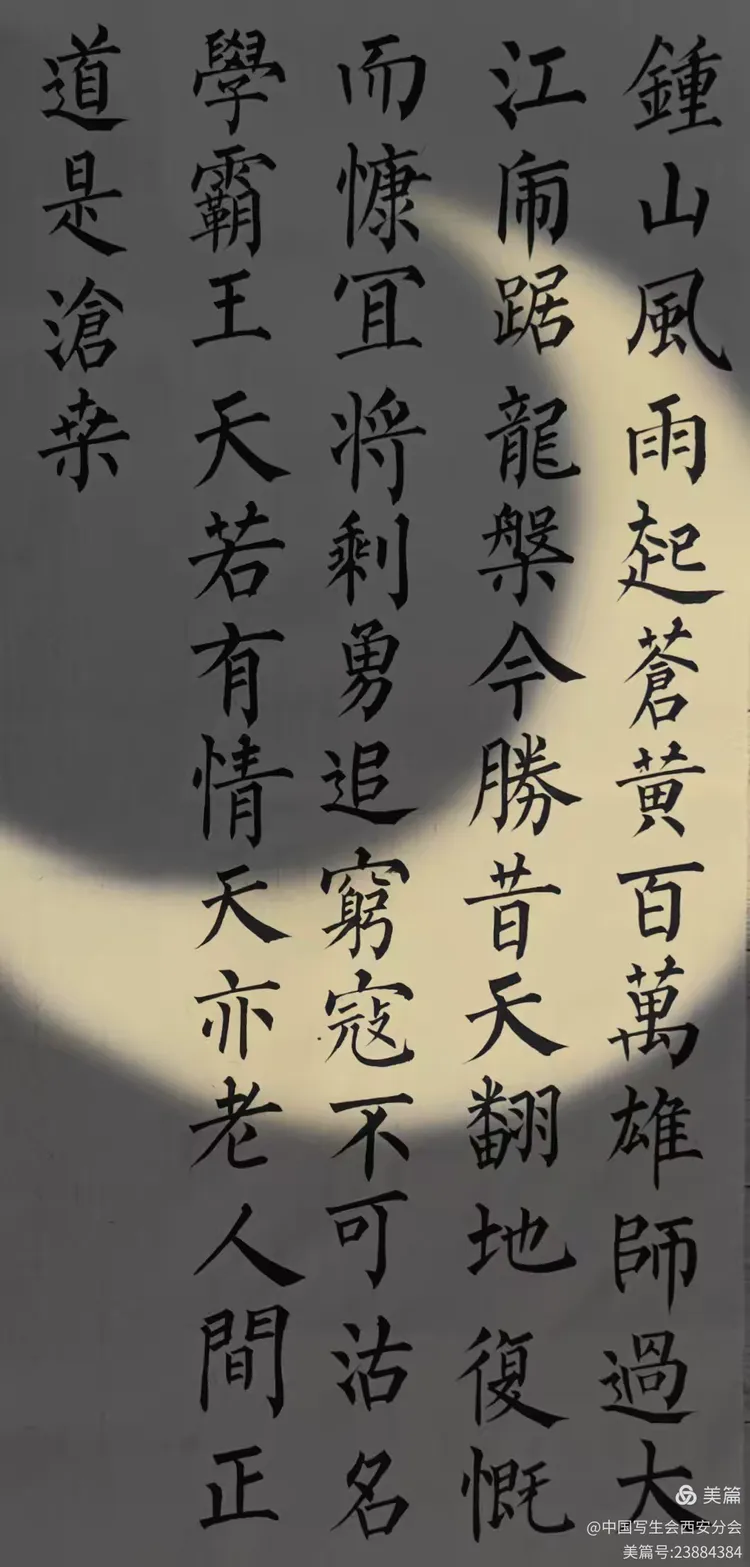 鍾山風雨起蒼黃百萬雄師過大
江乕踞龍槃今勝昔天翻地復慨
而慷冝将剩勇追窮寇不可沽名
學霸王天若有情天亦老人間正
道是滄桒
美篇
@中国写生会西安分会
美篇号:23884384